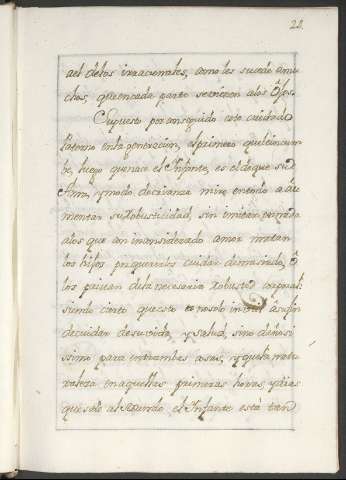 28.
ael delos irracionales, como les sucede amu-
chos, que encada parto se crieron alos
Supuesto por conseguido este cuidado
Paterno enla generacion, el primero que le incum-
be, luego que nace el Infante, es el de que su
Amo, y modo de crianza mire enteulo a au-
mentar su Robusticidad, sin imitar en nada
alos que con inconsiderado amor matan
los hijos por quererlos cuidar demasiado, ô
los privan dela necesaria Robustez corporal:
siendo cierto que esto es nosolo inutil âsu fin
decuidar desu vida, y salud, sino dañosi-
ssimo para entrambas cosas, y que la natu-
raleza enaquellas primeras horas, y dias
que sale al Mundo el Infante está tan